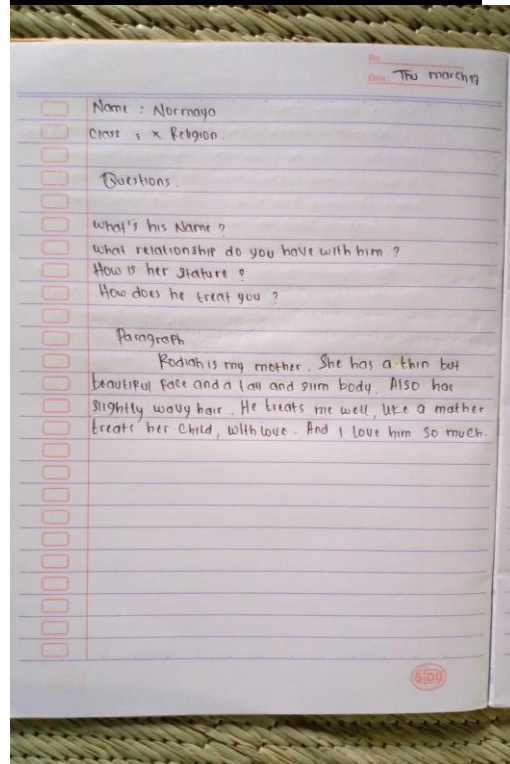 No.
Date: Thu march 17
Name : Normaya
Class : X Religion.
Questions.
What's his Name ?
What relationship do you have with him ?
How is her stature ?
How does he treat you ?
Paragraph
Rodiah is my mother. She has a thin but
beautiful face and a tall and slim body. Also has
slightly wavy hair. He treats me well, like a mother
treats her child, with love. And I love him so much.
SIDU